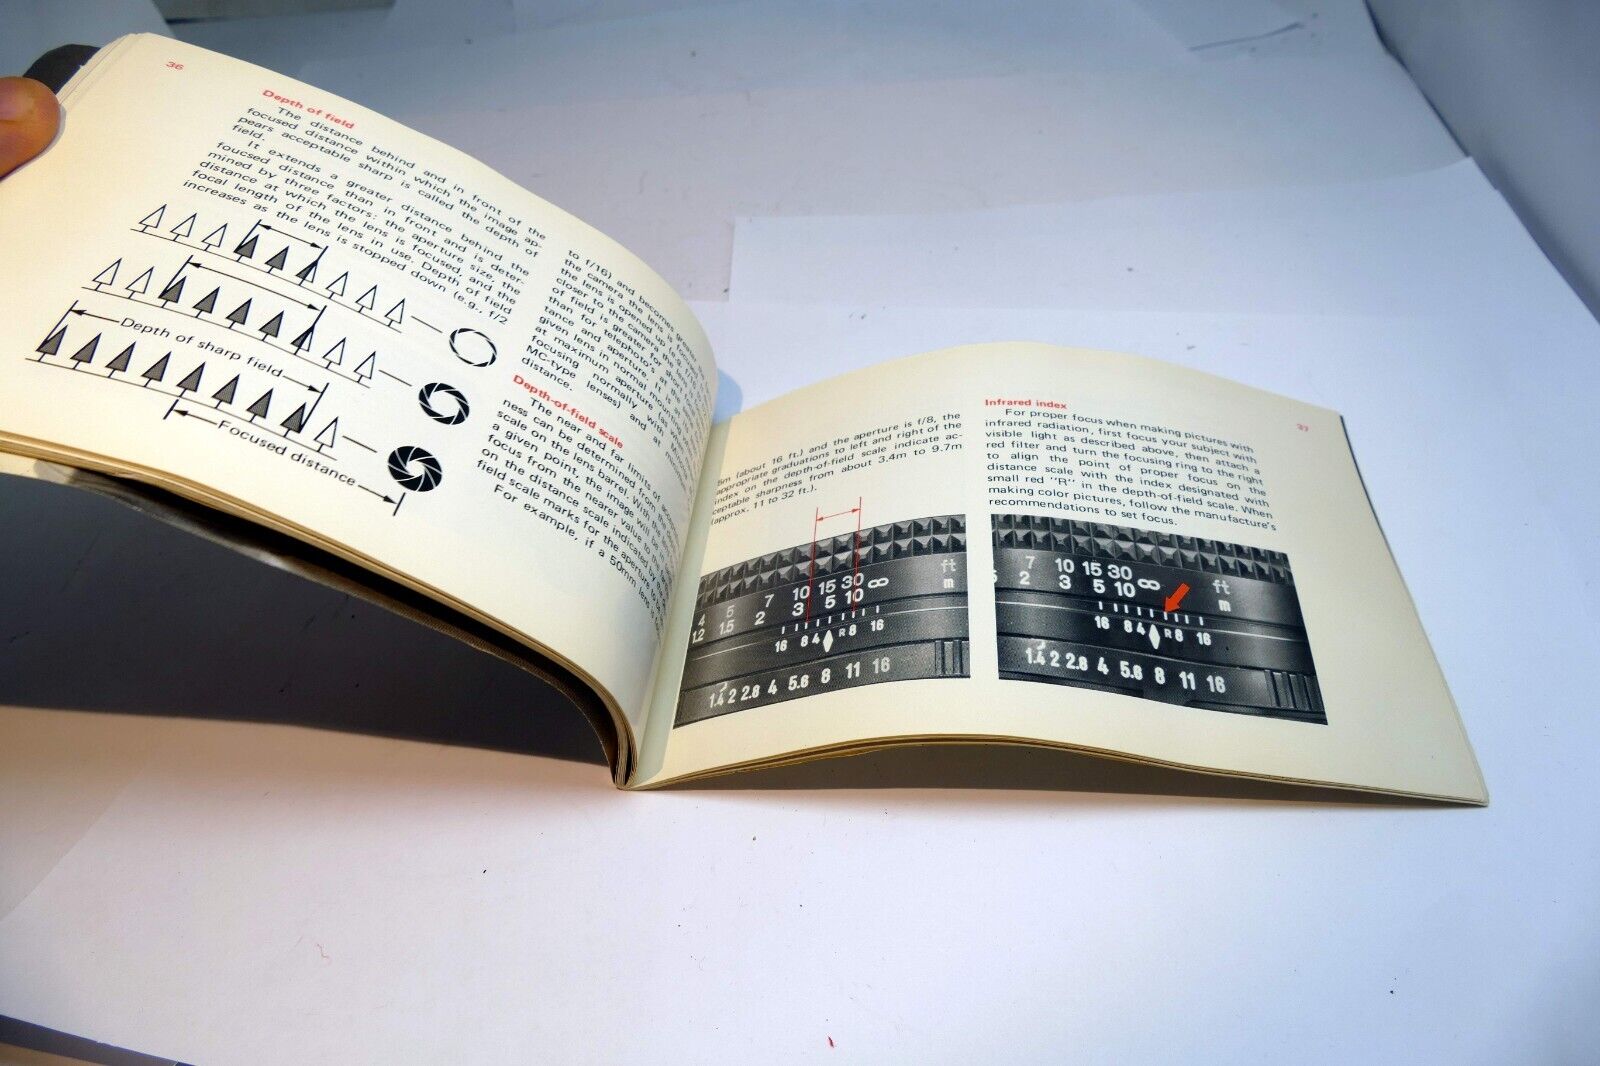 36
Depth of field
The distance behind and in front of the
focused distance within which the image ap-
pears acceptable sharp is called the depth of
field.
It extends a greater distance behind the
foucsed distance than in front and is deter-
mined by three factors: the aperture size, the
distance at which the lens is focused, and the
focal length of the lens in use. Depth of field
increases as the lens is stopped down (e.g., f/2
Depth of sharp field
Focused distance
to f/16) and becomes
the camera the lens is focused
the lens is opened up (e.g. f/16
closer to the camera the lens
of field is greater for short
than for telephoto's at
tance and aperture. It is
given lens in normal
at maximum aperture
focusing normally (as with
MC-type lenses) and at
distance.
Depth-of-field scale
The near and far limits of
ness can be determined from the
scale on the lens barrel. With the
a given point, the image will be in
focus from the nearer value to the
on the distance scale indicated by the
field scale marks for the aperture
For example, if a 50mm lens is
37
5m (about 16 ft.) and the aperture is f/8, the
appropriate graduations to left and right of the
index on the depth-of-field scale indicate ac-
ceptable sharpness from about 3.4m to 9.7m
(approx. 11 to 32 ft.).
4 5 7 10 15 30 ∞ ft
1.2 1.5 2 3 5 10 m
16 8 4 R 8 16
1.4 2 2.8 4 5.6 8 11 16
Infrared index
For proper focus when making pictures with
infrared radiation, first focus your subject with
visible light as described above, then attach a
red filter and turn the focusing ring to the right
to align the point of proper focus on the
distance scale with the index designated with
small red "R" in the depth-of-field scale. When
making color pictures, follow the manufacture's
recommendations to set focus.
7 10 15 30 ∞ ft
5 2 3 5 10 m
16 8 4 R 8 16
1.4 2 2.8 4 5.6 8 11 16